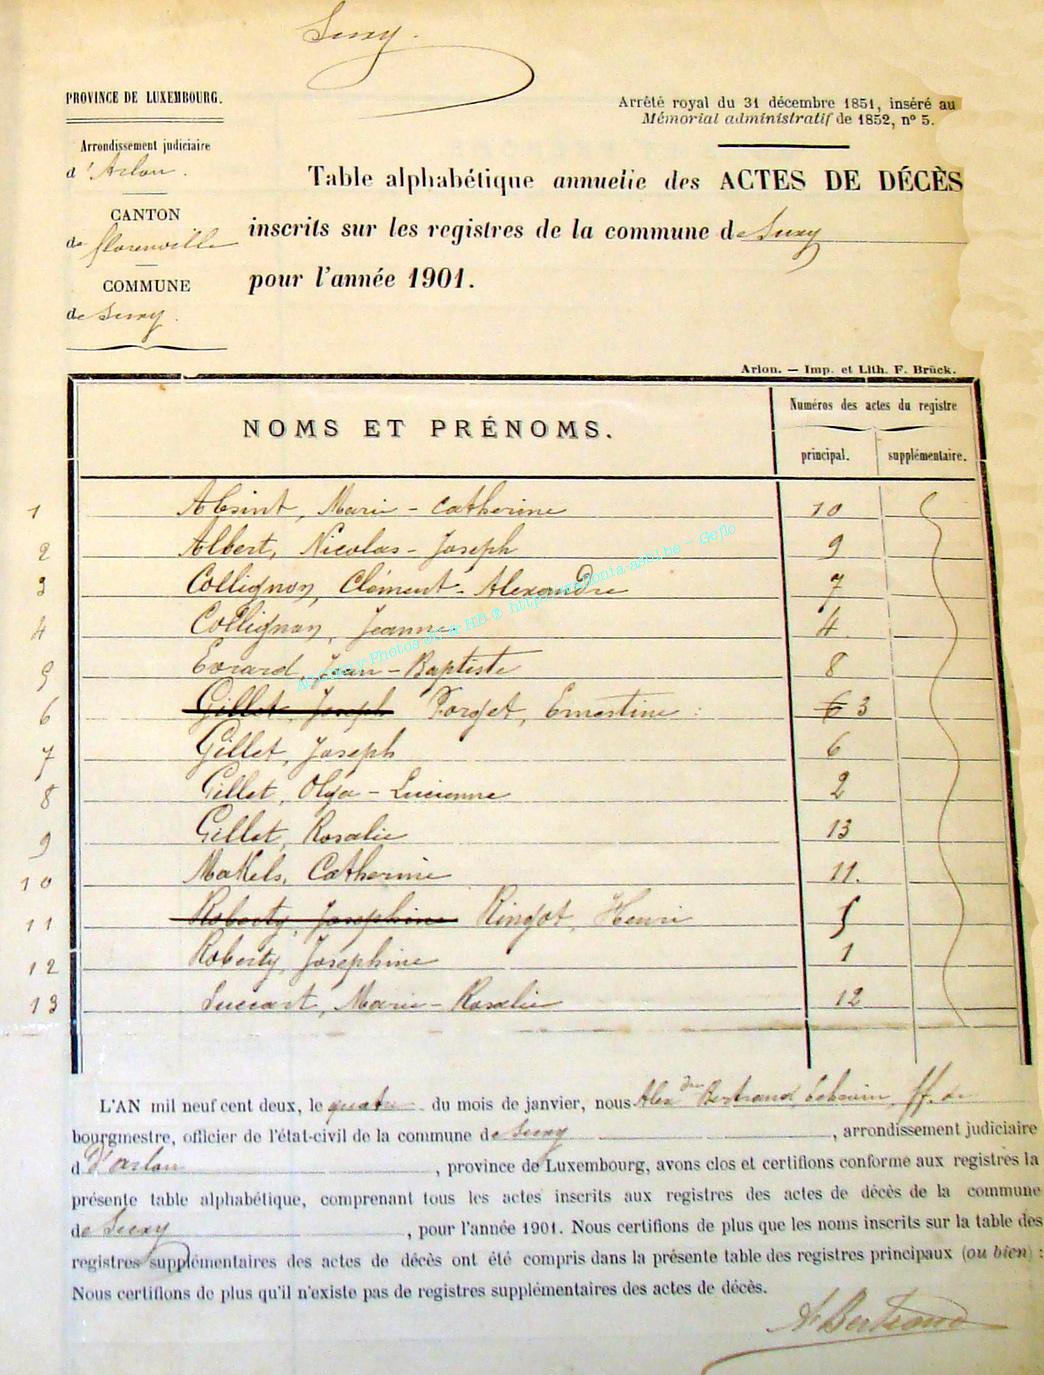 Suxy.
PROVINCE DE LUXEMBOURG.
Arrondissement judiciaire
d'Arlon.
CANTON
de florenville
COMMUNE
de Suxy.
Arrêté royal du 31 décembre 1851, inséré au
Mémorial administratif de 1852, n° 5.
Table alphabétique annuelle des ACTES DE DÉCÈS
inscrits sur les registres de la commune de Suxy
pour l'année 1901.
Arlon. — Imp. et Lith. F. Brück.
NOMS ET PRÉNOMS.
Numéros des actes du registre
principal. supplémentaire.
1 Absint, Marie - Catherine 10
2 Albert, Nicolas - Joseph 9
3 Collignon, Clément - Alexandre 7
4 Collignon, Jeanne 4
5 Evrard, Jean - Baptiste 8
6 Gillet, Joseph Forget, Ernestine : 6 3
7 Gillet, Joseph 6
8 Gillet, Olga - Lucienne 2
9 Gillet, Rosalie 13
10 Makels, Catherine 11.
11 Roberty, Josephine Ringot, Henri 5
12 Roberty, Josephine 1
13 Succart, Marie - Rosalie 12
L'AN mil neuf cent deux, le quatre du mois de janvier, nous Alexdre Bertrand, échevin, ff. de
bourgmestre, officier de l'état-civil de la commune de Suxy, arrondissement judiciaire
d d'arlon, province de Luxembourg, avons clos et certifions conforme aux registres la
présente table alphabétique, comprenant tous les actes inscrits aux registres des actes de décès de la commune
de Suxy, pour l'année 1901. Nous certifions de plus que les noms inscrits sur la table des
registres supplémentaires des actes de décès ont été compris dans la présente table des registres principaux (ou bien) :
Nous certifions de plus qu'il n'existe pas de registres supplémentaires des actes de décès.
Ax Bertrand